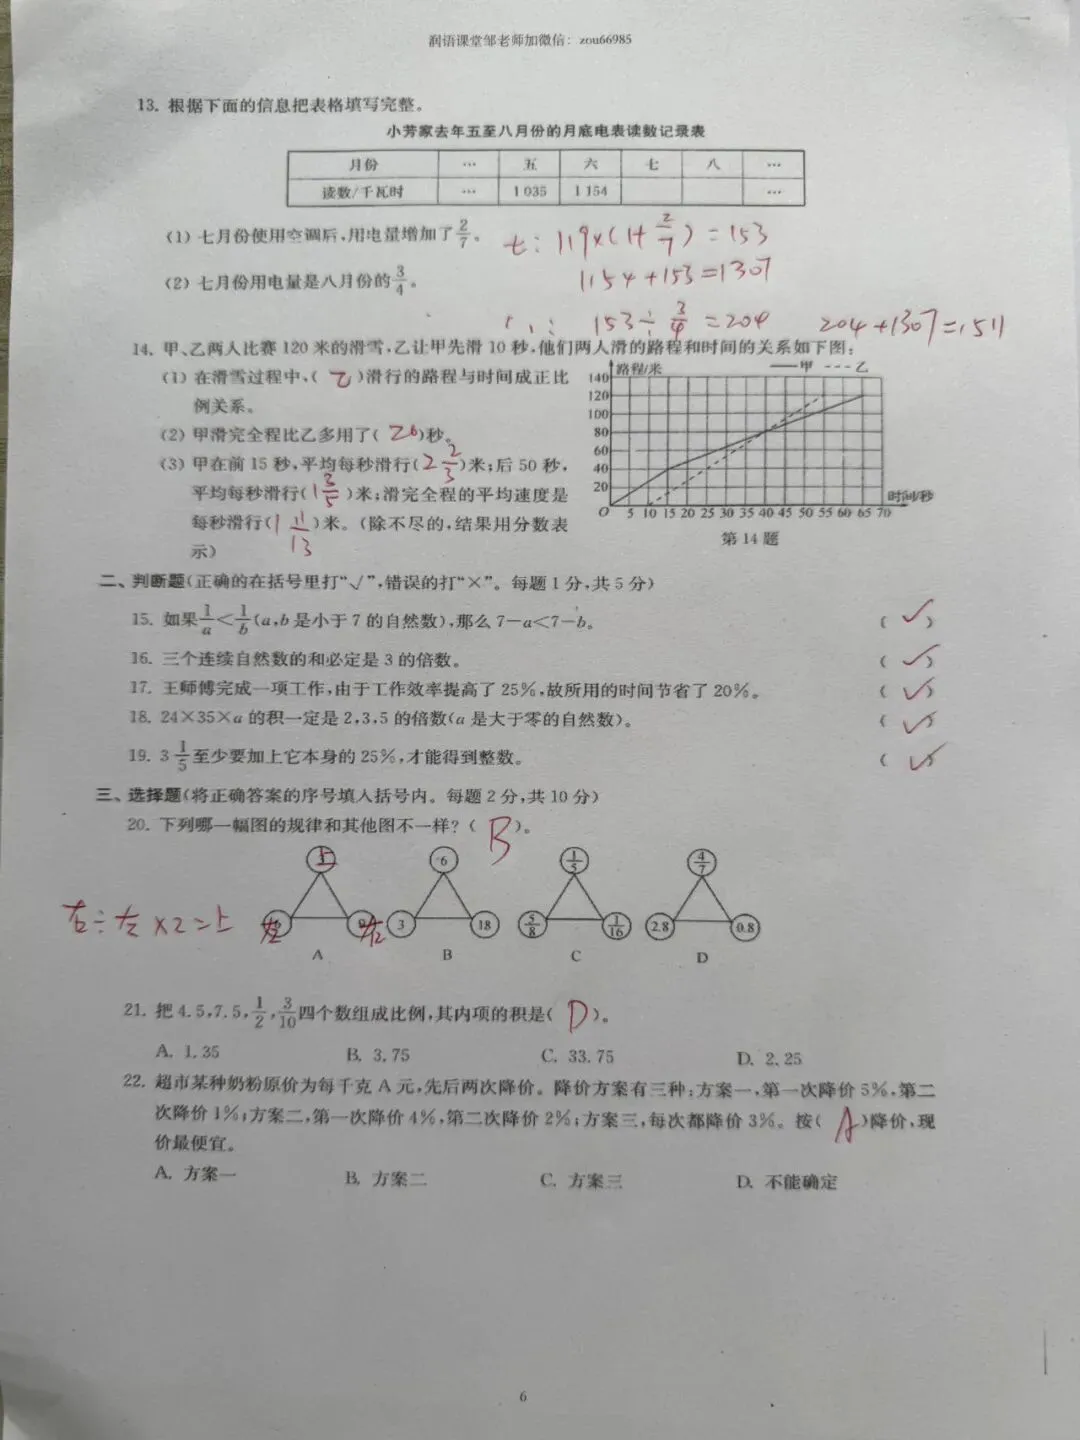 润语课堂邹老师加微信：zou66985
13. 根据下面的信息把表格填写完整。
小芳家去年五至八月份的月底电表读数记录表
月份 … 五 六 七 八 …
读数/千瓦时 … 1035 1154 …
(1) 七月份使用空调后，用电量增加了2/7。 七：119×(1+2/7)=153
1154+153=1307
(2) 七月份用电量是八月份的3/4。
153÷3/4=204 204+1307=1511
14. 甲、乙两人比赛120米的滑雪，乙让甲先滑10秒，他们两人滑的路程和时间的关系如下图：
(1) 在滑雪过程中，( 乙 )滑行的路程与时间成正比
例关系。
(2) 甲滑完全程比乙多用了( 20 )秒。
(3) 甲在前15秒，平均每秒滑行( 2 2/3 )米；后50秒，
平均每秒滑行( 1 3/5 )米；滑完全程的平均速度是
每秒滑行( 1 11/13 )米。(除不尽的，结果用分数表
示)
路程/米 甲 乙
140
120
100
80
60
40
20
O 5 10 15 20 25 30 35 40 45 50 55 60 65 70
时间/秒
第14题
二、判断题(正确的在括号里打“√”，错误的打“×”。每题1分，共5分)
15. 如果1/a<1/b(a,b是小于7的自然数)，那么7-a<7-b。 ( √ )
16. 三个连续自然数的和必定是3的倍数。 ( √ )
17. 王师傅完成一项工作，由于工作效率提高了25%，故所用的时间节省了20%。 ( √ )
18. 24×35×a的积一定是2,3,5的倍数(a是大于零的自然数)。 ( √ )
19. 3 1/5至少要加上它本身的25%，才能得到整数。 ( √ )
三、选择题(将正确答案的序号填入括号内。每题2分，共10分)
20. 下列哪一幅图的规律和其他图不一样？( B )。
上 6 1/5 4/7
右÷左×2=上
左 右 3 18 5/8 1/16 2.8 0.8
A B C D
21. 把4.5,7.5,1/2,3/10四个数组成比例，其内项的积是( D )。
A. 1.35 B. 3.75 C. 33.75 D. 2.25
22. 超市某种奶粉原价为每千克A元，先后两次降价。降价方案有三种：方案一，第一次降价5%，第二
次降价1%；方案二，第一次降价4%，第二次降价2%；方案三，每次都降价3%。按( A )降价，现
价最便宜。
A. 方案一 B. 方案二 C. 方案三 D. 不能确定
6